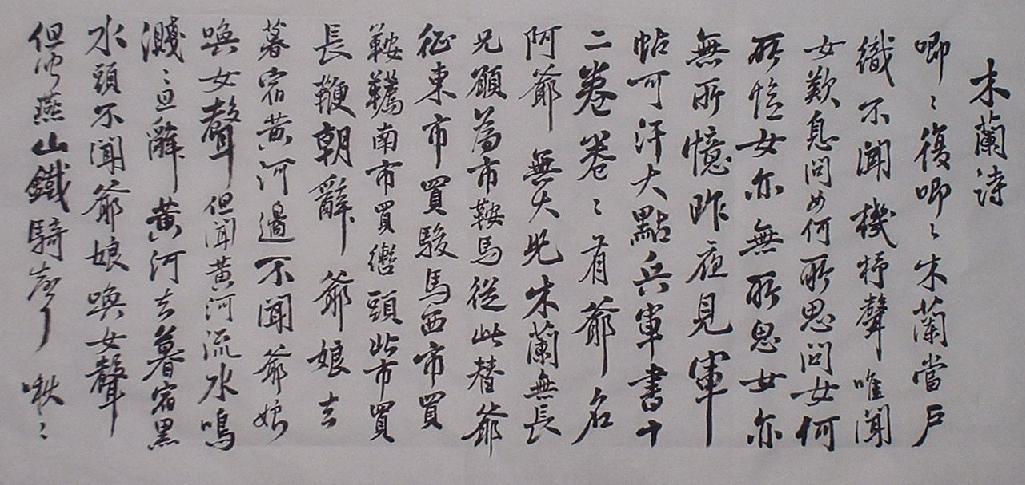 木蘭詩
唧〻復唧〻木蘭當戶
織不聞機杼聲唯聞
女歎息問女何所思問女何
所憶女亦無所思女亦
無所憶昨夜見軍
帖可汗大點兵軍書十
二卷卷〻有爺名
阿爺無大兒木蘭無長
兄願為市鞍馬從此替爺
征東市買駿馬西市買
鞍韉南市買轡頭北市買
長鞭朝辭爺娘去
暮宿黃河邊不聞爺娘
喚女聲但聞黃河流水鳴
濺〻旦辭黃河去暮宿黑
水頭不聞爺娘喚女聲
但聞燕山鐵騎聲啾〻